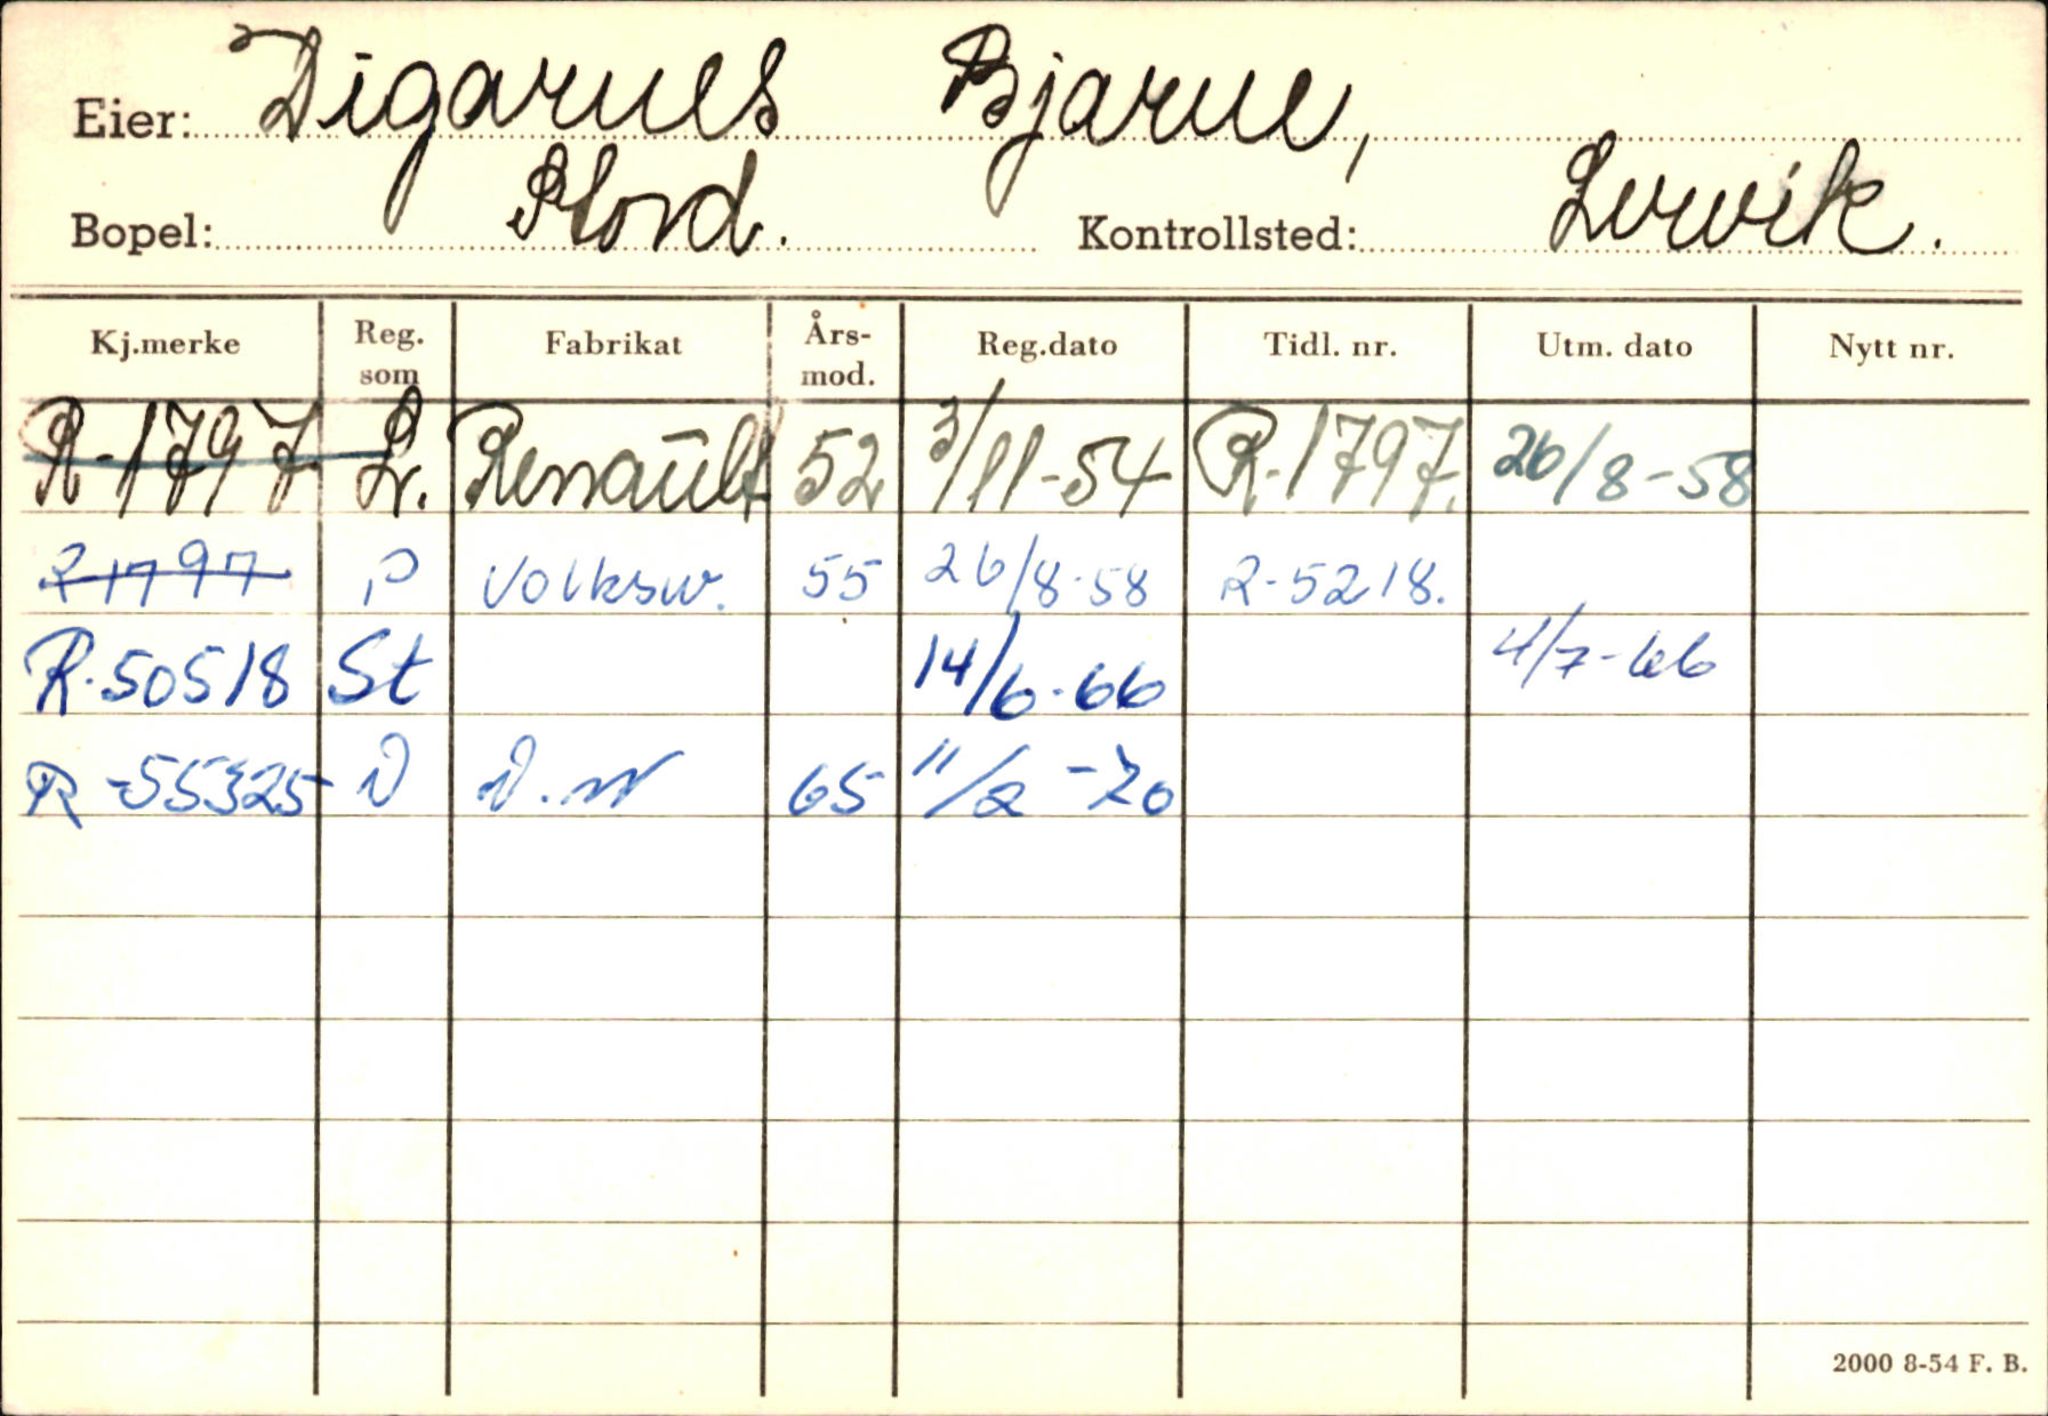 Eier: Digarnes Bjarne,
Bopel: Stord. Kontrollsted: Lervik.
Kj.merke Reg. som Fabrikat Års-mod. Reg.dato Tidl. nr. Utm. dato Nytt nr.
R-1797 L. Renault 52 3/11-54 R-1797. 26/8-58
R 1797 P Volksw. 55 26/8-58 R-5218.
R-50518 St 14/6-66 4/7-66
R-55325 V V.W 65 11/2-70
2000 8-54 F. B.